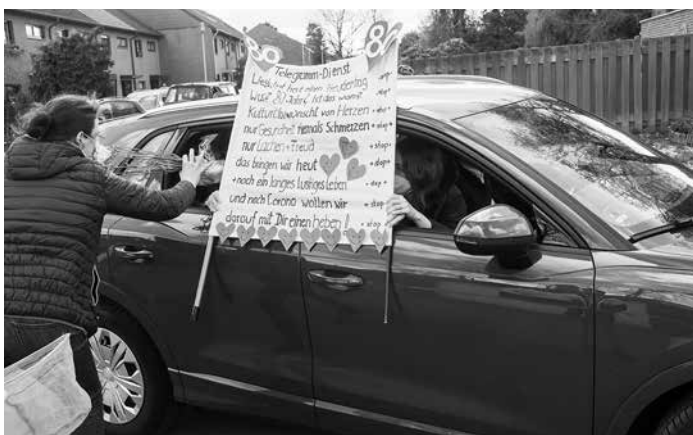 80 80
Telegramm-Dienst
Liesel hat heut einen Feiertag -stop-
Wast 80 Jahr! Ist das wahr? -stop-
Kultur Club wünscht von Herzen -stop-
nur Gesundheit niemals Schmerzen -stop-
nur Lachen + Freud -stop-
das bringen wir heut -stop-
+ noch ein langes lustiges Leben -stop-
und nach Corona wollen wir -stop-
darauf mit Dir einen heben! -stop-